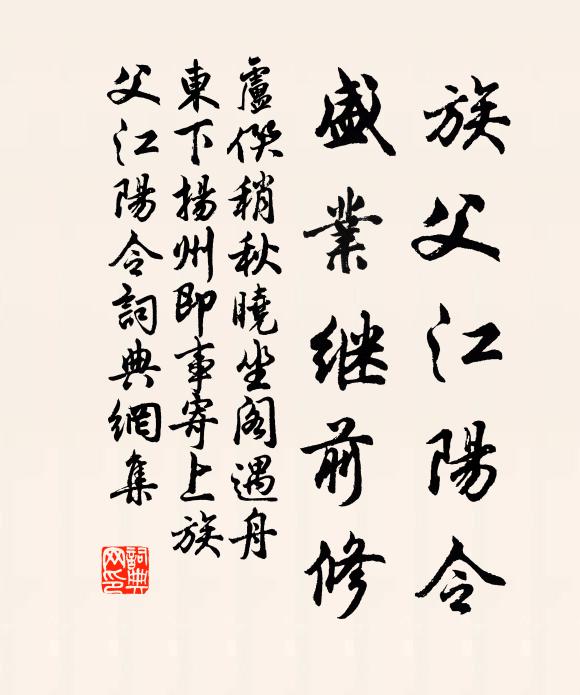 族父江陽令
盛業継前修
盧僎稍秋曉坐阁遇舟
東下揚州即事寄上族
父江陽令詞典網集
詞典网印